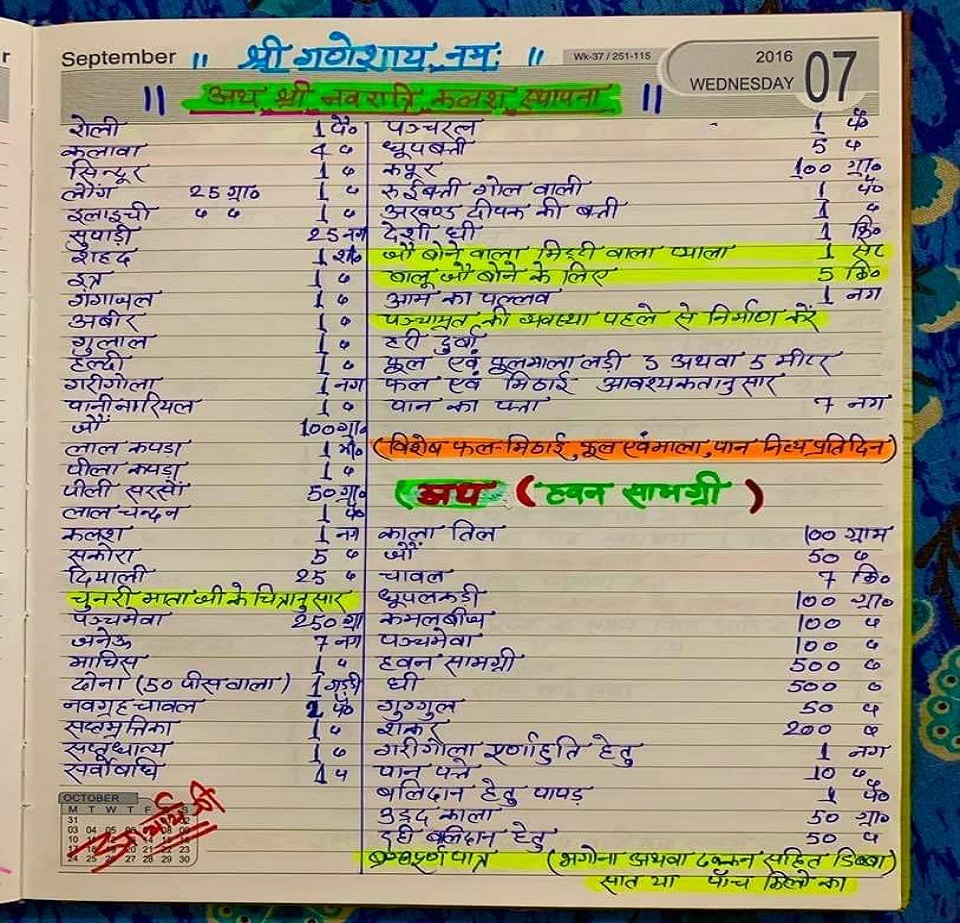 September
|| श्री गणेशाय नमः ||
Wk-37 / 251-115
2016
WEDNESDAY
07
|| अथ श्री नवरात्रि कलश स्थापना ||
रोली 1 पै०
कलावा 4 "
सिन्दूर 1 "
लौंग 25 ग्रा० 1 "
इलाइची " " 1 "
सुपाड़ी 25 नग
शहद 1 शी०
इत्र 1 "
गंगाजल 1 "
अबीर 1 "
गुलाल 1 "
हल्दी 1 "
गरीगोला 1 नग
पानीनारियल 1 "
जौ 100 ग्रा०
लाल कपड़ा 1 मी०
पीला कपड़ा 1 "
पीली सरसों 50 ग्रा०
लाल चन्दन 1 पै०
कलश 1 नग
सकोरा 5 "
दियाली 25 "
चुनरी माता जी के चित्रानुसार
पञ्चमेवा 250 ग्रा
जनेऊ 7 नग
माचिस 1 "
दोना (50 पीस वाला) 1 गड्डी
नवग्रह चावल 2 पै०
सप्तमृत्तिका 1 "
सप्तधान्य 1 "
सर्वोषधि 1 "
पञ्चरत्न 1 पै०
धूपबत्ती 5 "
कपूर 100 ग्रा०
रुईबत्ती गोल वाली 1 पै०
अखण्ड दीपक की बत्ती 1 "
देशी घी 1 कि०
जौ बोने वाला मिट्टी वाला प्याला 1 सेट
बालू जौ बोने के लिए 5 कि०
आम का पल्लव 1 नग
पञ्चामृत की व्यवस्था पहले से निर्माण करें
हरी दुर्बा
फूल एवं फूलमाला लड़ी 5 अथवा 5 मीटर
फल एवं मिठाई आवश्यकतानुसार
पान का पत्ता 7 नग
(विशेष फल-मिठाई, फूल एवं माला, पान नित्य प्रतिदिन)
(अथ (हवन सामग्री)
काला तिल 100 ग्राम
जौ 50 "
चावल 7 कि०
धूपलकड़ी 100 ग्रा०
कमलबीज 100 "
पञ्चमेवा 100 "
हवन सामग्री 500 "
घी 500 "
गुग्गुल 50 "
शक्कर 200 "
गरीगोला पूर्णाहुति हेतु 1 नग
पान पत्ते 10 "
बलिदान हेतु पापड़ 1 पै०
उड़द काला 50 ग्रा०
दही बलिदान हेतु 50 "
ब्रह्मपूर्ण पात्र (भगोना अथवा ढक्कन सहित डिब्बा)
सात या पाँच किलो का
OCTOBER
M T W T F S S
31 02
03 04 05 06 08 09
10 11 15 16
17 18 22 23
24 25 26 27 28 29 30